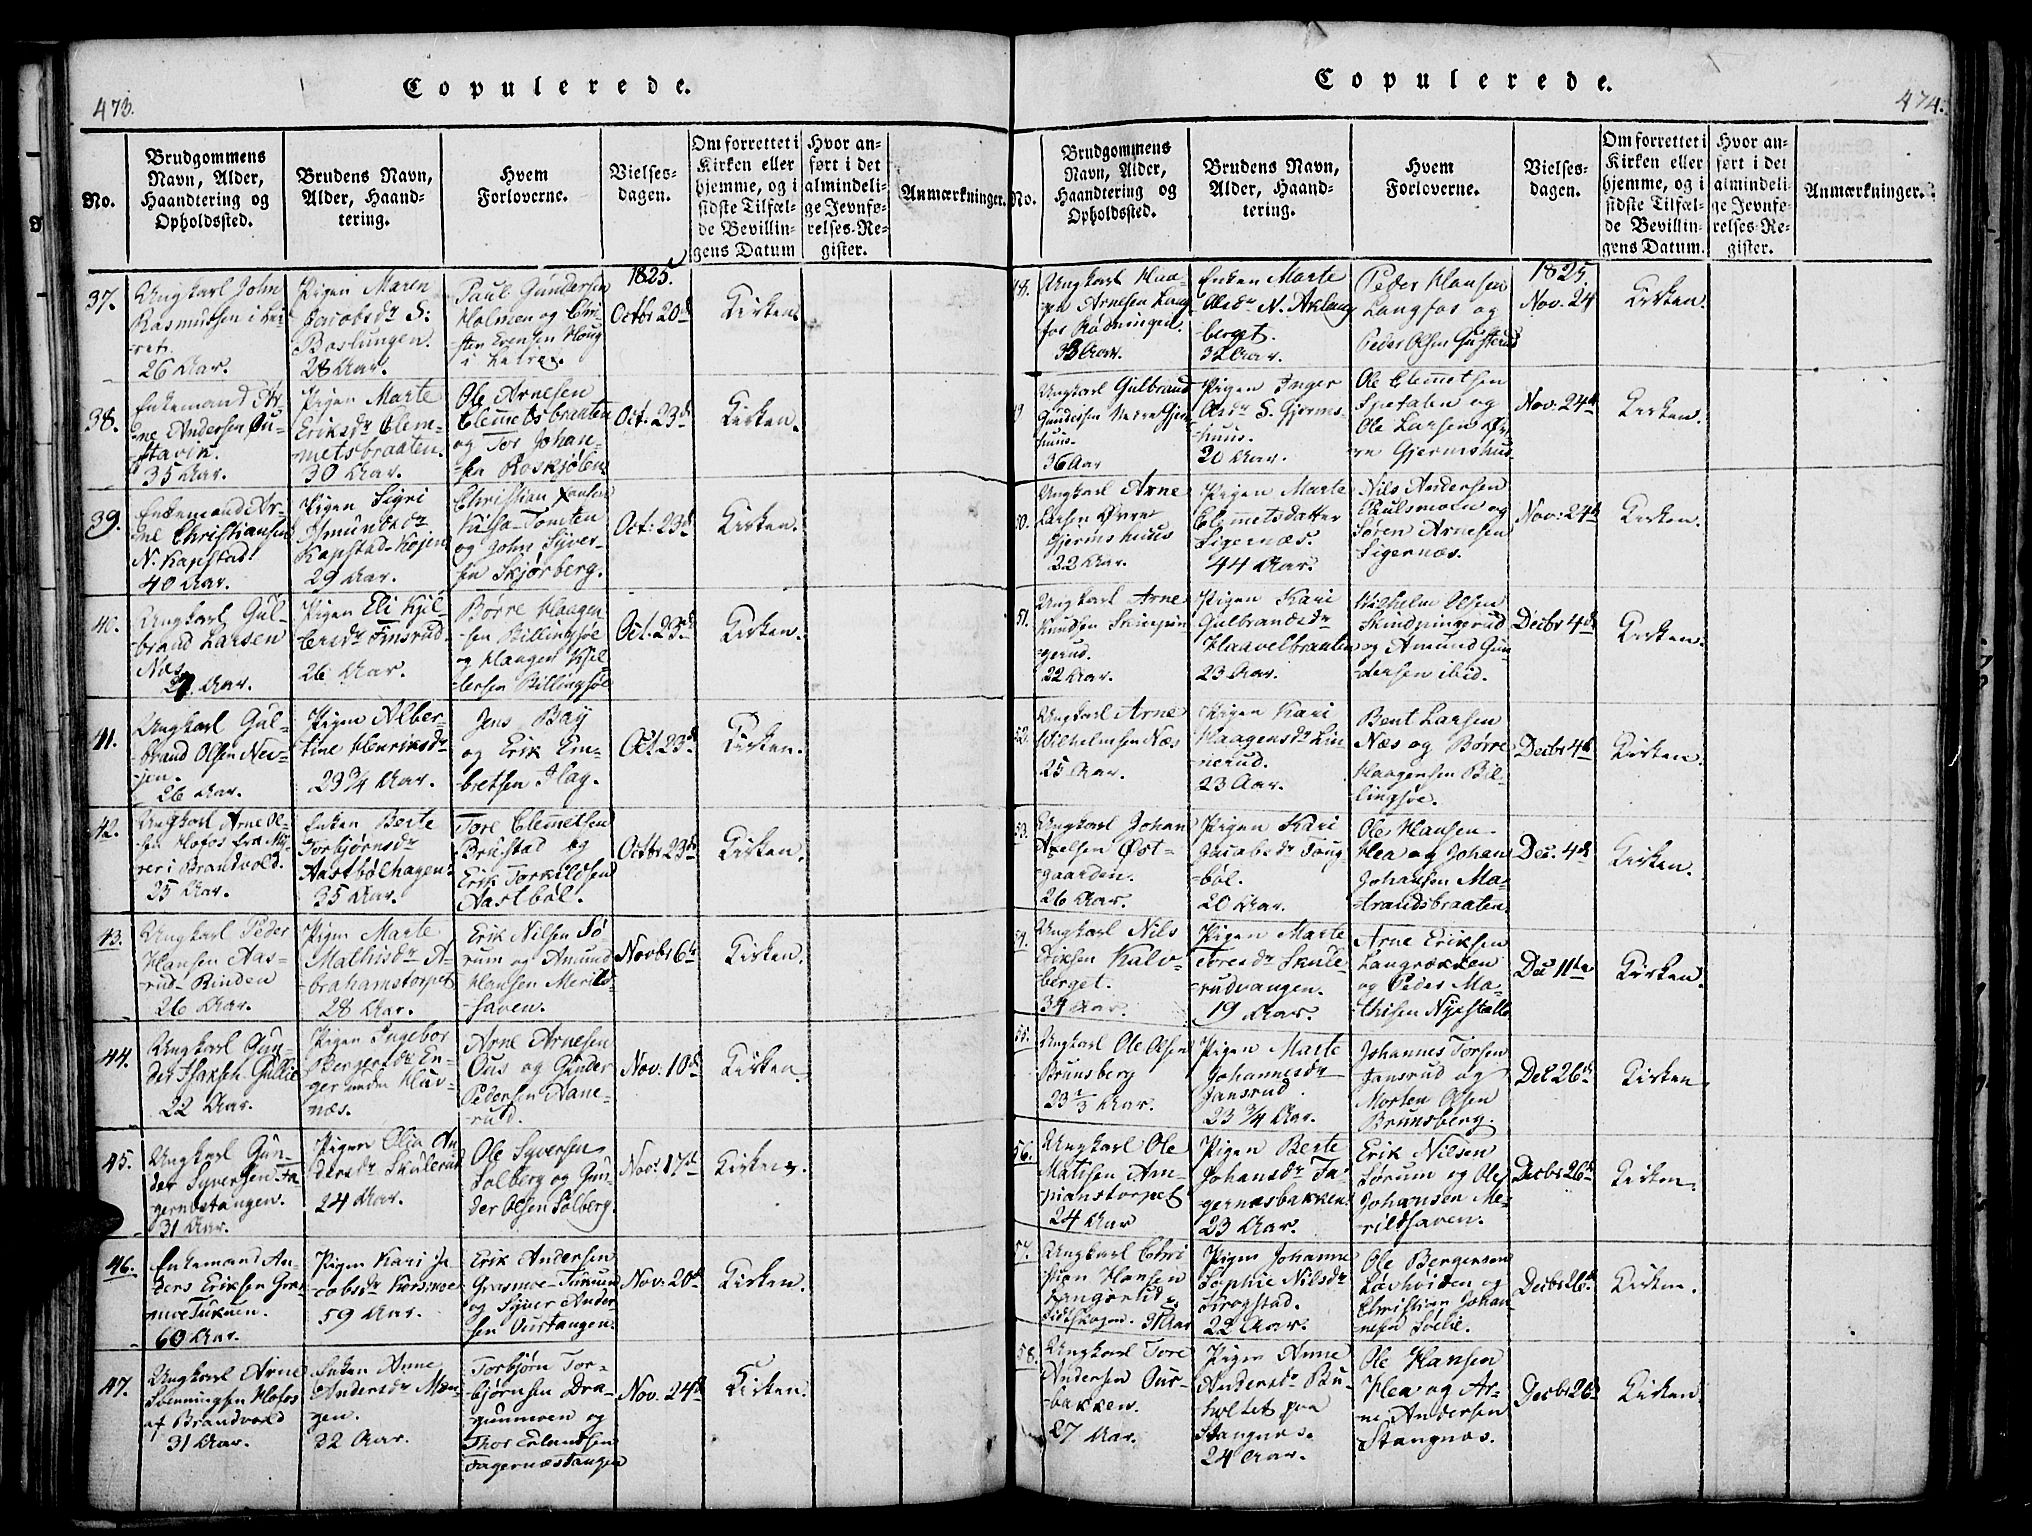 473.
Copulerede.
No.
Brudgommens Navn, Alder, Haandtering og Opholdssted.
Brudens Navn, Alder, Haandtering.
Hvem Forloverne.
Vielsesdagen.
Om forrettet i Kirken eller hjemme, og i sidste Tilfælde Bevillingens Datum
Hvor anført i det almindelige Jevnførelses-Register.
Anmærkninger.
1825.
37.
Ungkarl John
Rasmussen i
26 Aar.
Pigen Maren
Jacobsdr S:
Baslungen.
28 Aar.
Paul Gundersen
Holmen og Chri-
sten Evensen Houg
i Hetra.
Octbr 20d
Kirken
38.
Enkemand Ar-
ne Andersen Ou-
stavik.
35 Aar.
Pigen Marte
Eriksdr Clem-
metsbraaten.
30 Aar.
Ole Arnesen
Clemmetsbraaten
og Tor Johan-
sen Roskjølen
Oct: 23d
Kirken.
39.
Enkemand Ar-
ne Christiansen
N. Kapstad
40 Aar.
Pigen Sigri
Asmundsdr
Kapstad-Kojen
29 Aar.
Christian
Tomten
og John Syver-
sen Skjørberg.
Oct: 23d
Kirken.
40.
Ungkarl Gul-
brand Larsen
Næs
27 Aar.
Pigen Eli Kjil-
bersdr Finsrud
26 Aar.
Børre Haagen-
sen Billingsøe
og Haagen Kjil-
bersen Billingsøe
Oct. 23d
Kirken.
41.
Ungkarl Gul-
brand Olsen Nor-
26 Aar.
Pigen Alber-
tine Henriksdr
23 3/4 Aar.
Jens Bay
og Erik Em-
bretsen Hag.
Oct 23d
Kirken.
42.
Ungkarl Arne Ol-
sen Hofos fra My-
rer i Brandvold.
25 Aar.
Enken Berte
Torbjørnsdr
Aastbølhagen
35 Aar.
Tore Clemmetsen
Brustad og
Erik Torkildsen
Aastbøl.
Octbr 23d
Kirken.
43.
Ungkarl Peder
Hansen Aas-
rud-Rinden
26 Aar.
Pigen Marte
Mathisdr A-
brahamstorpet
28 Aar.
Erik Nilsen Sø-
rum og Amund
Hansen Merits-
haven.
Novbr 6te
Kirken.
44.
Ungkarl Gun-
der Isaksen Gullie
22 Aar.
Pigen Ingebor
Bergersdr En-
ger Huv-
næs.
Arne Arnesen
Ous og Gunder
Pedersen Aane-
rud.
Nov. 10d
Kirken.
45.
Ungkarl Gun-
der Syversen Fa-
gernæstangen.
31 Aar.
Pigen Olia An-
dersdr Skulerud
24 Aar.
Ole Syversen
Solberg og Gun-
der Olsen Solberg.
Nov: 17d
Kirken.
46.
Enkemand An-
ders Eriksen Gra-
moe Tuknen.
60 Aar.
Pigen Kari Ja-
cobsdr Korsmoe
59 Aar.
Erik Andersen
Grasmoe-Tuknen
og Syver Ander-
sen Oustangen.
Nov. 20d
Kirken.
47.
Ungkarl Arne
Svenningsen Hofos
af Brandvold
31 Aar.
Enken Anne
Andersdr Mæn-
gen.
32 Aar.
Torbjørn Tor-
bjørnsen Dra-
gunmoen og
Thor Erlandsen
Fagernæstangen
Nov. 24d
Kirken.
474.
Copulerede.
No.
Brudgommens Navn, Alder, Haandtering og Opholdssted.
Brudens Navn, Alder, Haandtering.
Hvem Forloverne.
Vielsesdagen.
Om forrettet i Kirken eller hjemme, og i sidste Tilfælde Bevillingens Datum.
Hvor anført i det almindelige Jevnførelses-Register.
Anmærkninger.
1825.
48.
Ungkarl Haa-
gen Arnesen Lang-
fos Rødningen.
33 Aar.
Enken Marte
Olesdr N. Aklang-
berget.
32 Aar.
Peder Hansen
Langfos og
Peder Olsen Gusterud
Nov. 24
Kirken.
49
Ungkarl Gulbrand
Gundersen Nerre Gjerms-
huus.
36 Aar
Pigen Inger
Olsdr S. Gjerms-
huus.
20 Aar.
Ole Clemetsen
Spetalen og
Ole Larsen Øv-
re Gjermshus
Nov: 24d
Kirken.
50.
Ungkarl Arne
Larsen Øvre
Gjermshuus
22 Aar.
Pigen Marte
Clemmetsdatter
Sigernæs.
44 Aar.
Nils Andersen
Paulsmoen og
Søren Arnesen
Sigernæs.
Nov: 24d
Kirken.
51.
Ungkarl Arne
Knudsen Skinpin-
gerud.
22 Aar.
Pigen Kari
Gulbrandsdr
Haavelbraaten
23 Aar.
Wilhelm Olsen
Skindpingerud
og Amund Gun-
dersen ibid.
Decbr 4de
Kirken.
52.
Ungkarl Arne
Wilhelmsen Næs
25 Aar.
Pigen Kari
Haagensdr Lin-
nerud.
23 Aar.
Bent Larsen
Næs og Børre
Haagensen Bil-
lingsøe.
Decbr 4d
Kirken.
53.
Ungkarl Johan
Axelsen Øst-
gaarden.
26 Aar.
Pigen Kari
Jacobsdr Toug-
bøl.
20 Aar.
Ole Hansen
Hea og Johan
Johansen Ma-
trandsbraaten
Dec. 4de
Kirken.
54.
Ungkarl Nils
Eriksen Kalv-
berget.
34 Aar.
Pigen Marte
Toresdr Skule-
rudvangen.
19 Aar.
Arne Eriksen
Langrækken
og Peder Ma-
thisen Nyestulle
Dec 11te
Kirken.
55.
Ungkarl Ole Olsen
Brunsberg
23 2/3 Aar.
Pigen Marte
Johannesdr
Jansrud.
23 3/4 Aar.
Johannes Torsen
Jansrud og
Morten Olsen
Brunsberg.
Dec 26d
Kirken
56.
Ungkarl Ole
Matisen Am-
manstorpet
24 Aar
Pigen Berte
Johansdr Fa-
gernæsbakken
23 Aar.
Erik Nilsen
Sørum og Ole
Johansen Me-
ridshaven.
Decbr 26d
Kirken.
57.
Ungkarl Chri-
stian Hansen
Langerud
Eidskogen. 31 Aar
Pigen Johanne
Sophie Nilsdr
Krogstad.
22 Aar.
Ole Bergersen
Løvhviden og
Christian Johan-
nesen Solie.
Decbr 26d
Kirken.
58.
Ungkarl Tore
Andersen Our-
bakken.
27 Aar.
Pigen Anne
Andersdr Bu-
holtet paa
Stangnæs.
24 Aar.
Ole Hansen
Hea og Ar-
ne Andersen
Stangnæs.
Decbr 26d
Kirken.